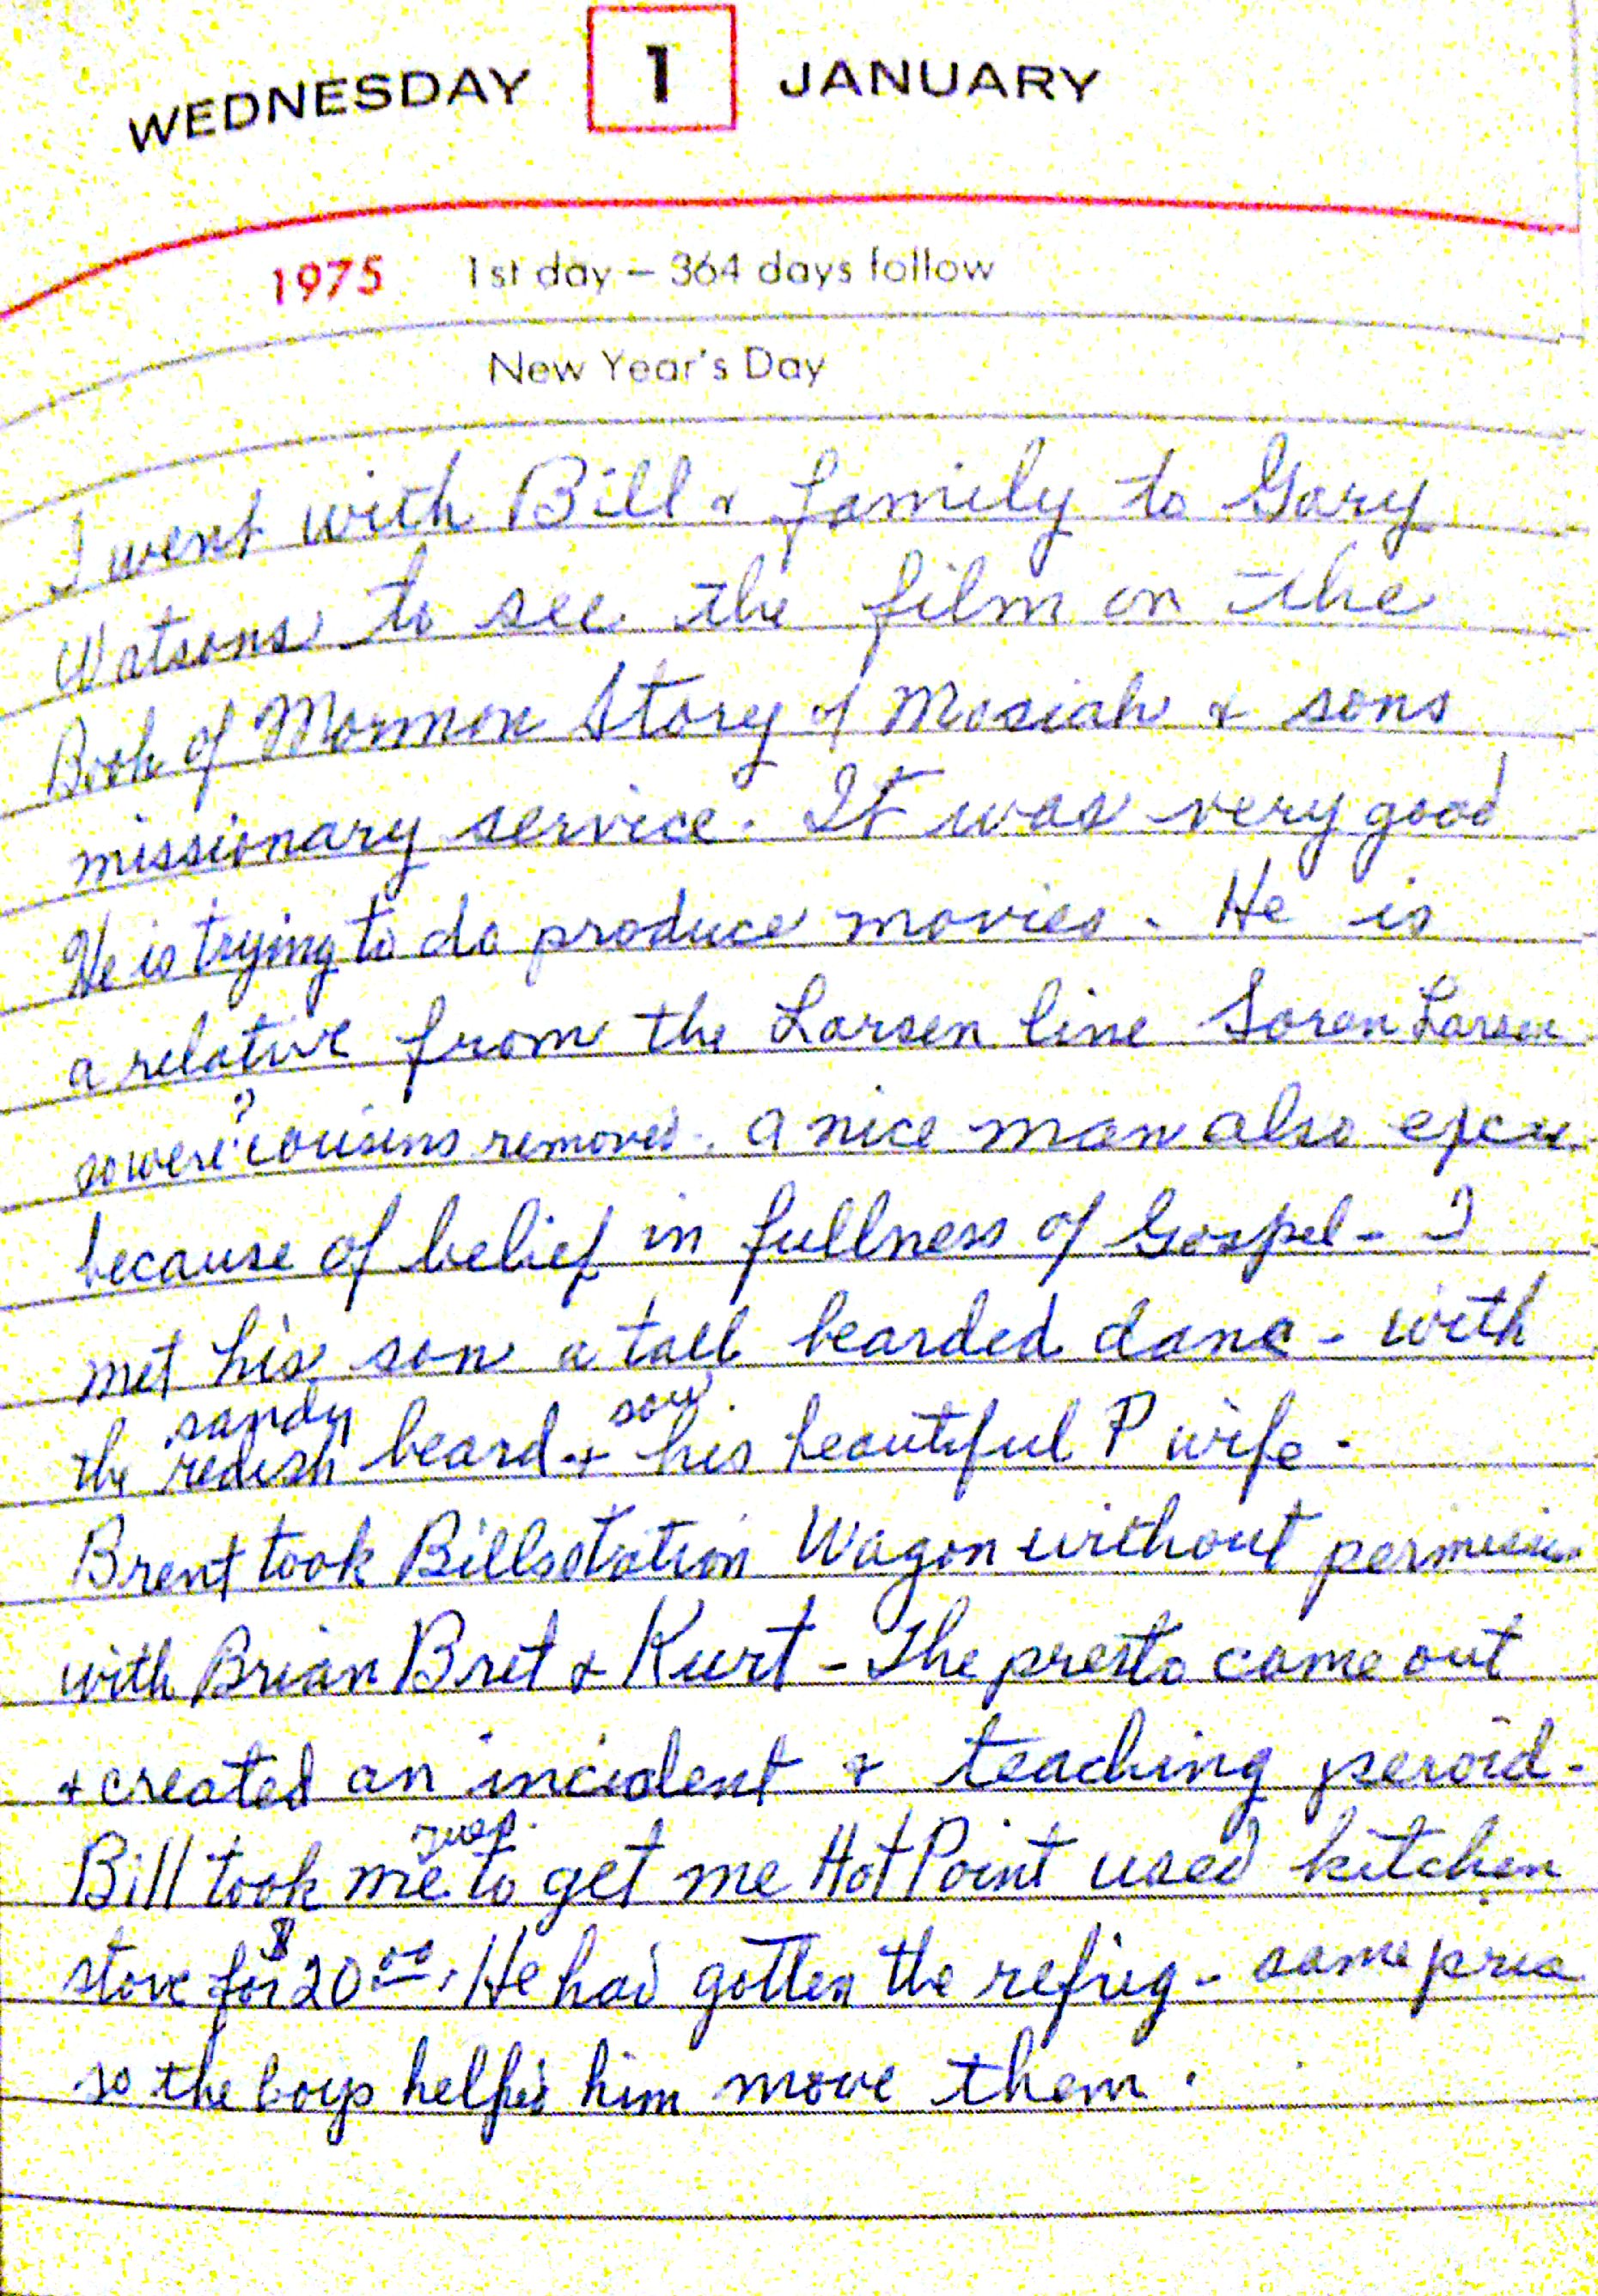 WEDNESDAY 1 JANUARY
1975 1st day – 364 days follow
New Year's Day
I went with Bill & family to Gary
Watsons to see the film on the
Book of Mormon Story of Mosiah & sons
missionary service. It was very good
He is trying to do produce movies. He is
a relative from the Larsen line Soren Larsen
?
so were cousins removed. a nice man also excu
because of belief in fullness of Gospel - I
met his son a tall bearded dane - with
sandy saw
the redish beard + his beautiful P wife.
Brent took Bills station Wagon without permission
with Brian Bret & Kurt - The presto come out
+ created an incident & teaching peroid -
Bill took me to get me Hot Point used kitchen
stove for $20.00. He had gotten the refrig - same price
so the boys helped him move them.